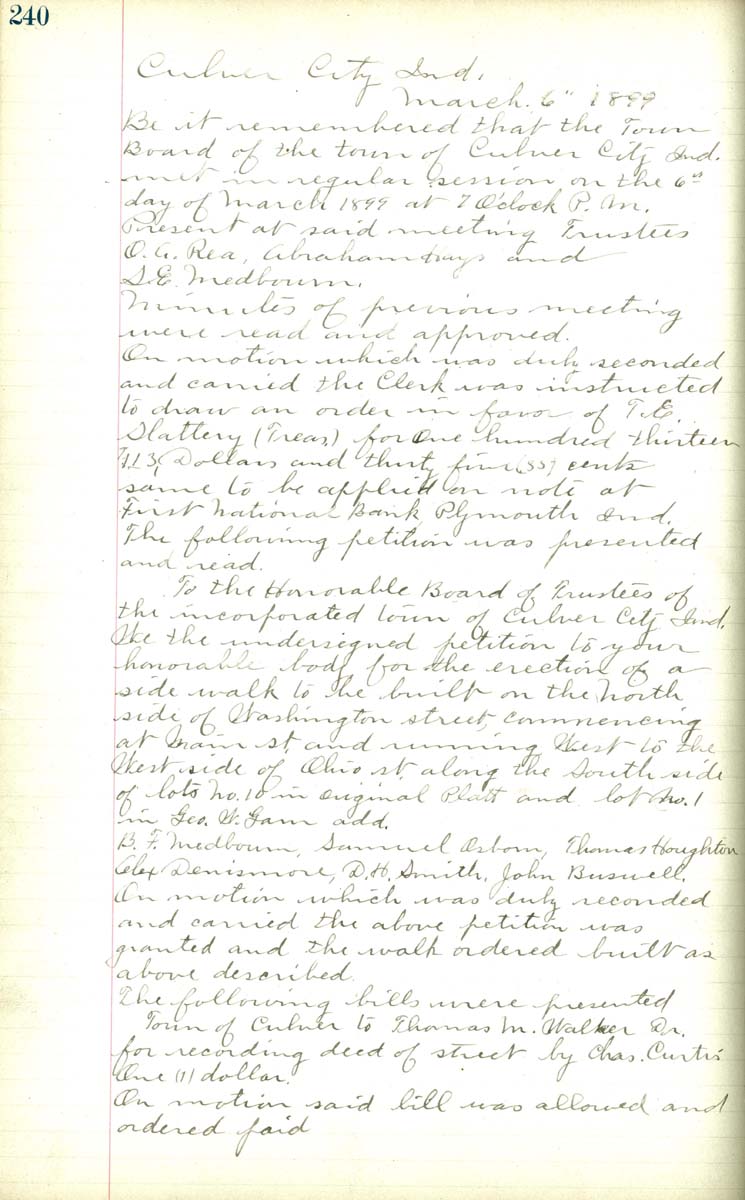 240
Culver City Ind.
March. 6" 1899
Be it remembered that the Town
Board of the town of Culver City Ind.
met in regular session on the 6th
day of March 1899 at 7 O'clock P. M.
Present at said meeting Trustees
O. A. Rea, Abraham Hays and
S. E. Medbourn.
Minutes of previous meeting
were read and approved.
On motion which was duly seconded
and carried the Clerk was instructed
to draw an order in favor of T. E.
Slattery (Treas) for One hundred thirteen
113 Dollars and thirty five (35) cents
same to be applied on note at
First National Bank Plymouth Ind.
The following petition was presented
and read.
To the Honorable Board of Trustees of
the incorporated town of Culver City Ind.
We the undersigned petition to your
honorable body for the erection of a
side walk to be built on the North
side of Washington street, commencing
at Main st, and running West to the
West side of Ohio st. along the South side
of lots No. 10 in original Platt and lot No. 1
in Geo. W. Gam add.
B. F. Medbourn, Samuel Osborn, Thomas Houghton
Alex Denismore, D. H. Smith, John Buswell.
On motion which was duly seconded
and carried the above petition was
granted and the walk ordered built as
above described.
The following bills were presented
Town of Culver to Thomas M. Walker Dr.
for recording deed of street by Chas. Curtis
One (1) dollar.
On motion said bill was allowed and
ordered paid